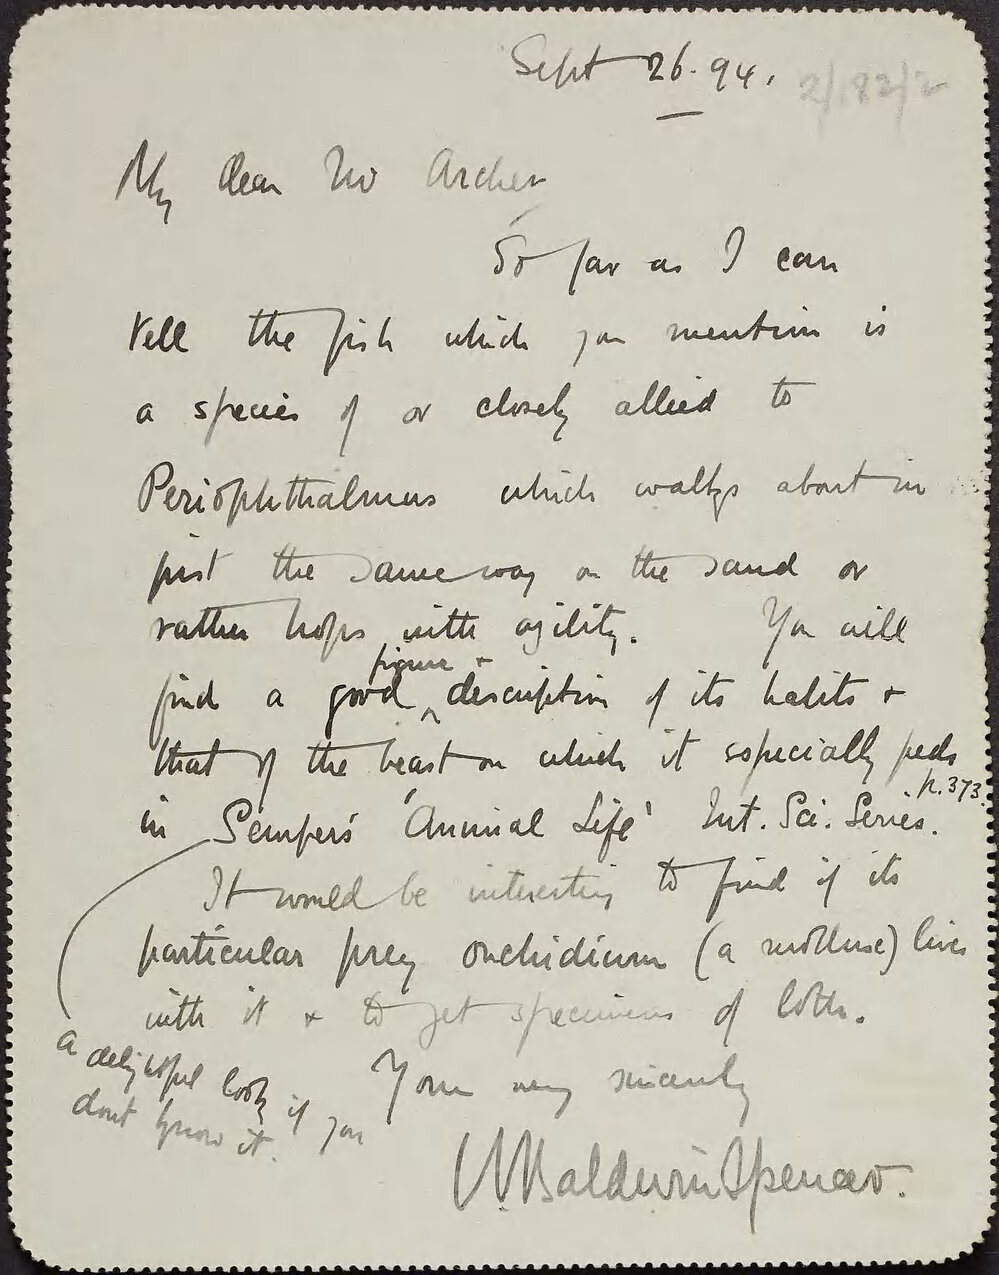 Sept 26. 94.
2/182/2
My dear Mr Archer
So far as I can
tell the fish which you mention is
a species of or closely allied to
Periophthalmus which walks about in
just the same way on the sand or
rather hops with agility. You will
figure &
find a good ^ description of its habits &
that of the beast on which it especially feeds
p. 373.
in Semper's 'Animal Life' Int. Sci. Series.
It would be interesting to find if its
particular prey onchidium (a mollusc) lives
with it & to get specimens of both.
a delightful book if you
dont know it.
Yours very sincerely
W. Baldwin Spencer.